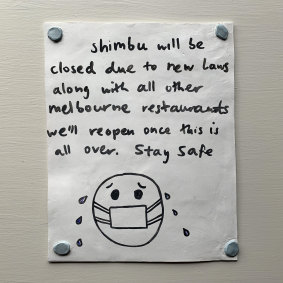 shimbu will be
closed due to new laws
along with all other
melbourne restaurants
we'll reopen once this is
all over. Stay Safe